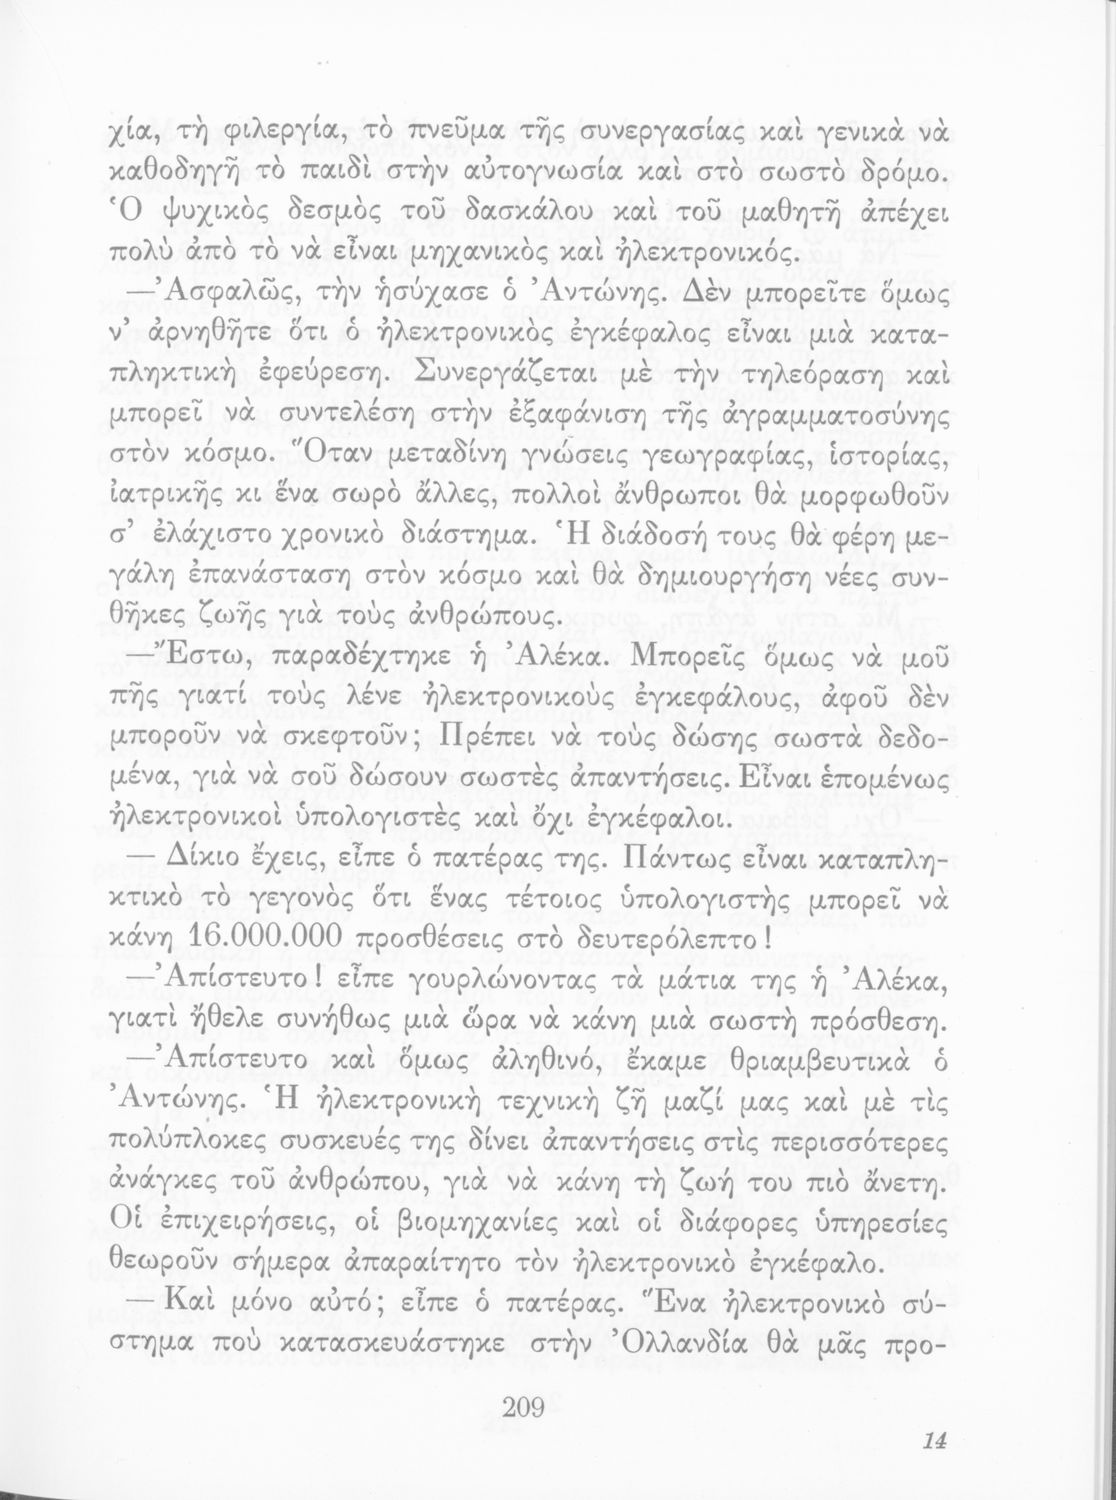 χία, τὴ φιλεργία, τὸ πνεῦμα τῆς συνεργασίας καὶ γενικὰ νὰ
καθοδηγῆ τὸ παιδὶ στὴν αὐτογνωσία καὶ στὸ σωστὸ δρόμο.
Ὁ ψυχικὸς δεσμὸς τοῦ δασκάλου καὶ τοῦ μαθητῆ ἀπέχει
πολὺ ἀπὸ τὸ νὰ εἶναι μηχανικὸς καὶ ἠλεκτρονικός.
—Ἀσφαλῶς, τὴν ἡσύχασε ὁ Ἀντώνης. Δὲν μπορεῖτε ὅμως
ν’ ἀρνηθῆτε ὅτι ὁ ἠλεκτρονικὸς ἐγκέφαλος εἶναι μιὰ κατα-
πληκτικὴ ἐφεύρεση. Συνεργάζεται μὲ τὴν τηλεόραση καὶ
μπορεῖ νὰ συντελέση στὴν ἐξαφάνιση τῆς ἀγραμματοσύνης
στὸν κόσμο. Ὅταν μεταδίνη γνώσεις γεωγραφίας, ἱστορίας,
ἰατρικῆς κι ἕνα σωρὸ ἄλλες, πολλοὶ ἄνθρωποι θὰ μορφωθοῦν
σ’ ἐλάχιστο χρονικὸ διάστημα. Ἡ διάδοσή τους θὰ φέρη με-
γάλη ἐπανάσταση στὸν κόσμο καὶ θὰ δημιουργήση νέες συν-
θῆκες ζωῆς γιὰ τοὺς ἀνθρώπους.
—Ἔστω, παραδέχτηκε ἡ Ἀλέκα. Μπορεῖς ὅμως νὰ μοῦ
πῆς γιατί τοὺς λένε ἠλεκτρονικοὺς ἐγκεφάλους, ἀφοῦ δὲν
μποροῦν νὰ σκεφτοῦν; Πρέπει νὰ τοὺς δώσης σωστὰ δεδο-
μένα, γιὰ νὰ σοῦ δώσουν σωστὲς ἀπαντήσεις. Εἶναι ἑπομένως
ἠλεκτρονικοὶ ὑπολογιστὲς καὶ ὄχι ἐγκέφαλοι.
— Δίκιο ἔχεις, εἶπε ὁ πατέρας της. Πάντως εἶναι καταπλη-
κτικὸ τὸ γεγονὸς ὅτι ἕνας τέτοιος ὑπολογιστὴς μπορεῖ νὰ
κάνη 16.000.000 προσθέσεις στὸ δευτερόλεπτο!
—Ἀπίστευτο! εἶπε γουρλώνοντας τὰ μάτια της ἡ Ἀλέκα,
γιατὶ ἤθελε συνήθως μιὰ ὥρα νὰ κάνη μιὰ σωστὴ πρόσθεση.
—Ἀπίστευτο καὶ ὅμως ἀληθινό, ἔκαμε θριαμβευτικὰ ὁ
Ἀντώνης. Ἡ ἠλεκτρονικὴ τεχνικὴ ζῆ μαζί μας καὶ μὲ τὶς
πολύπλοκες συσκευές της δίνει ἀπαντήσεις στὶς περισσότερες
ἀνάγκες τοῦ ἀνθρώπου, γιὰ νὰ κάνη τὴ ζωή του πιὸ ἄνετη.
Οἱ ἐπιχειρήσεις, οἱ βιομηχανίες καὶ οἱ διάφορες ὑπηρεσίες
θεωροῦν σήμερα ἀπαραίτητο τὸν ἠλεκτρονικὸ ἐγκέφαλο.
— Καὶ μόνο αὐτό; εἶπε ὁ πατέρας. Ἕνα ἠλεκτρονικὸ σύ-
στημα ποὺ κατασκευάστηκε στὴν Ὀλλανδία θὰ μᾶς προ-
209
14